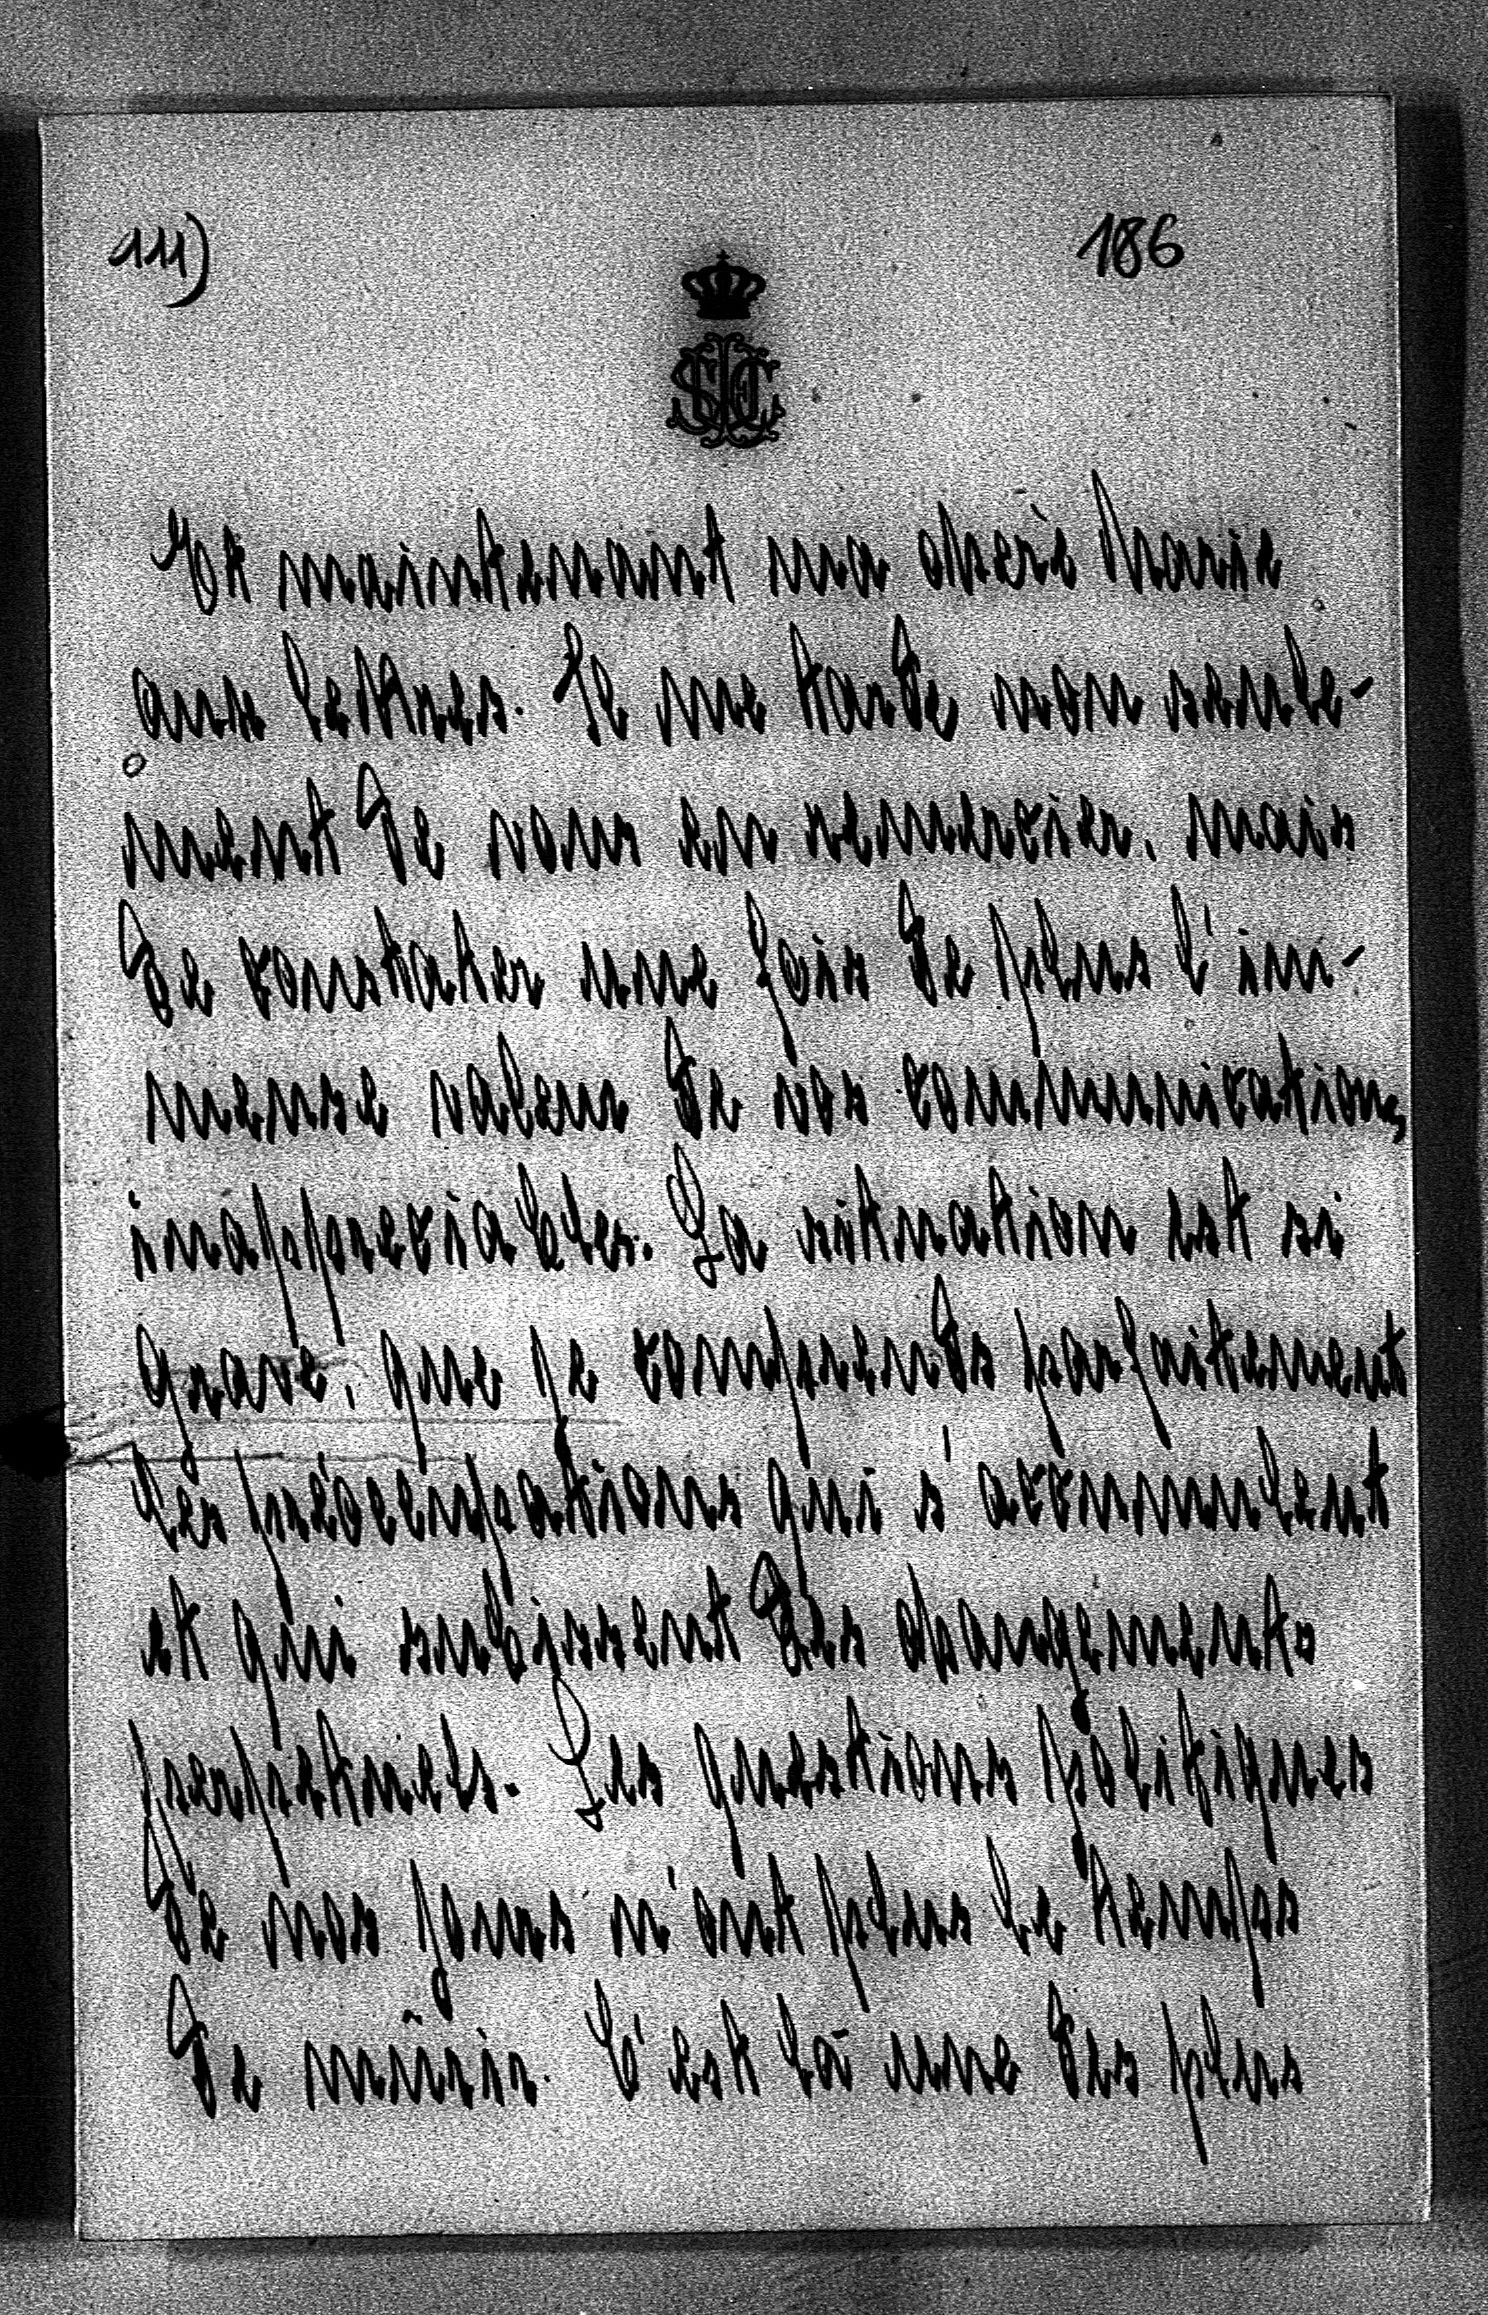 111)
186
Et maintenant ma chère Marie
aux lettres. Il me tarde non seule-
ment de vous en remercier, mais
de constater une fois de plus l'im-
mense valeur de vos communications
inappréciables. La situation est si
grave, que je comprends parfaitement
les préoccupations qui s'accumulent
et qui subissent des changements
perpétuels. Les questions politiques
de nos jours n'ont plus le temps
de mûrir. C'est là une des plus